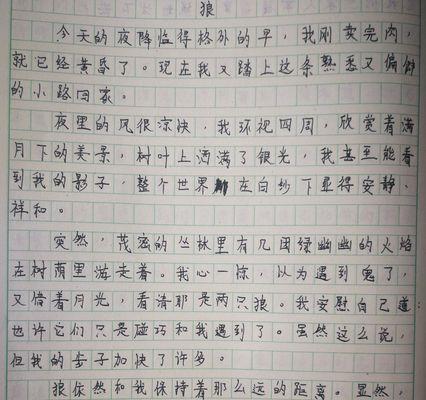 狼
今天的夜降临得格外的早，我刚卖完肉，
就已经黄昏了。现在我又踏上这条熟悉又偏僻
的小路回家。
夜里的风很凉快，我环视四周，欣赏着满
月下的美景，树叶上洒满了银光，我甚至能看
到我的影子，整个世界在白纱下显得安静、
祥和。
突然，茂密的丛林里有几团绿幽幽的火焰
在树荫里游走着。我心一惊，以为遇到鬼了，
又借着月光，看清那是两只狼。我安慰自己道：
也许它们只是碰巧和我遇到了。虽然这么说，
但我的步子加快了许多。
狼依然和我保持着那么远的距离。显然，